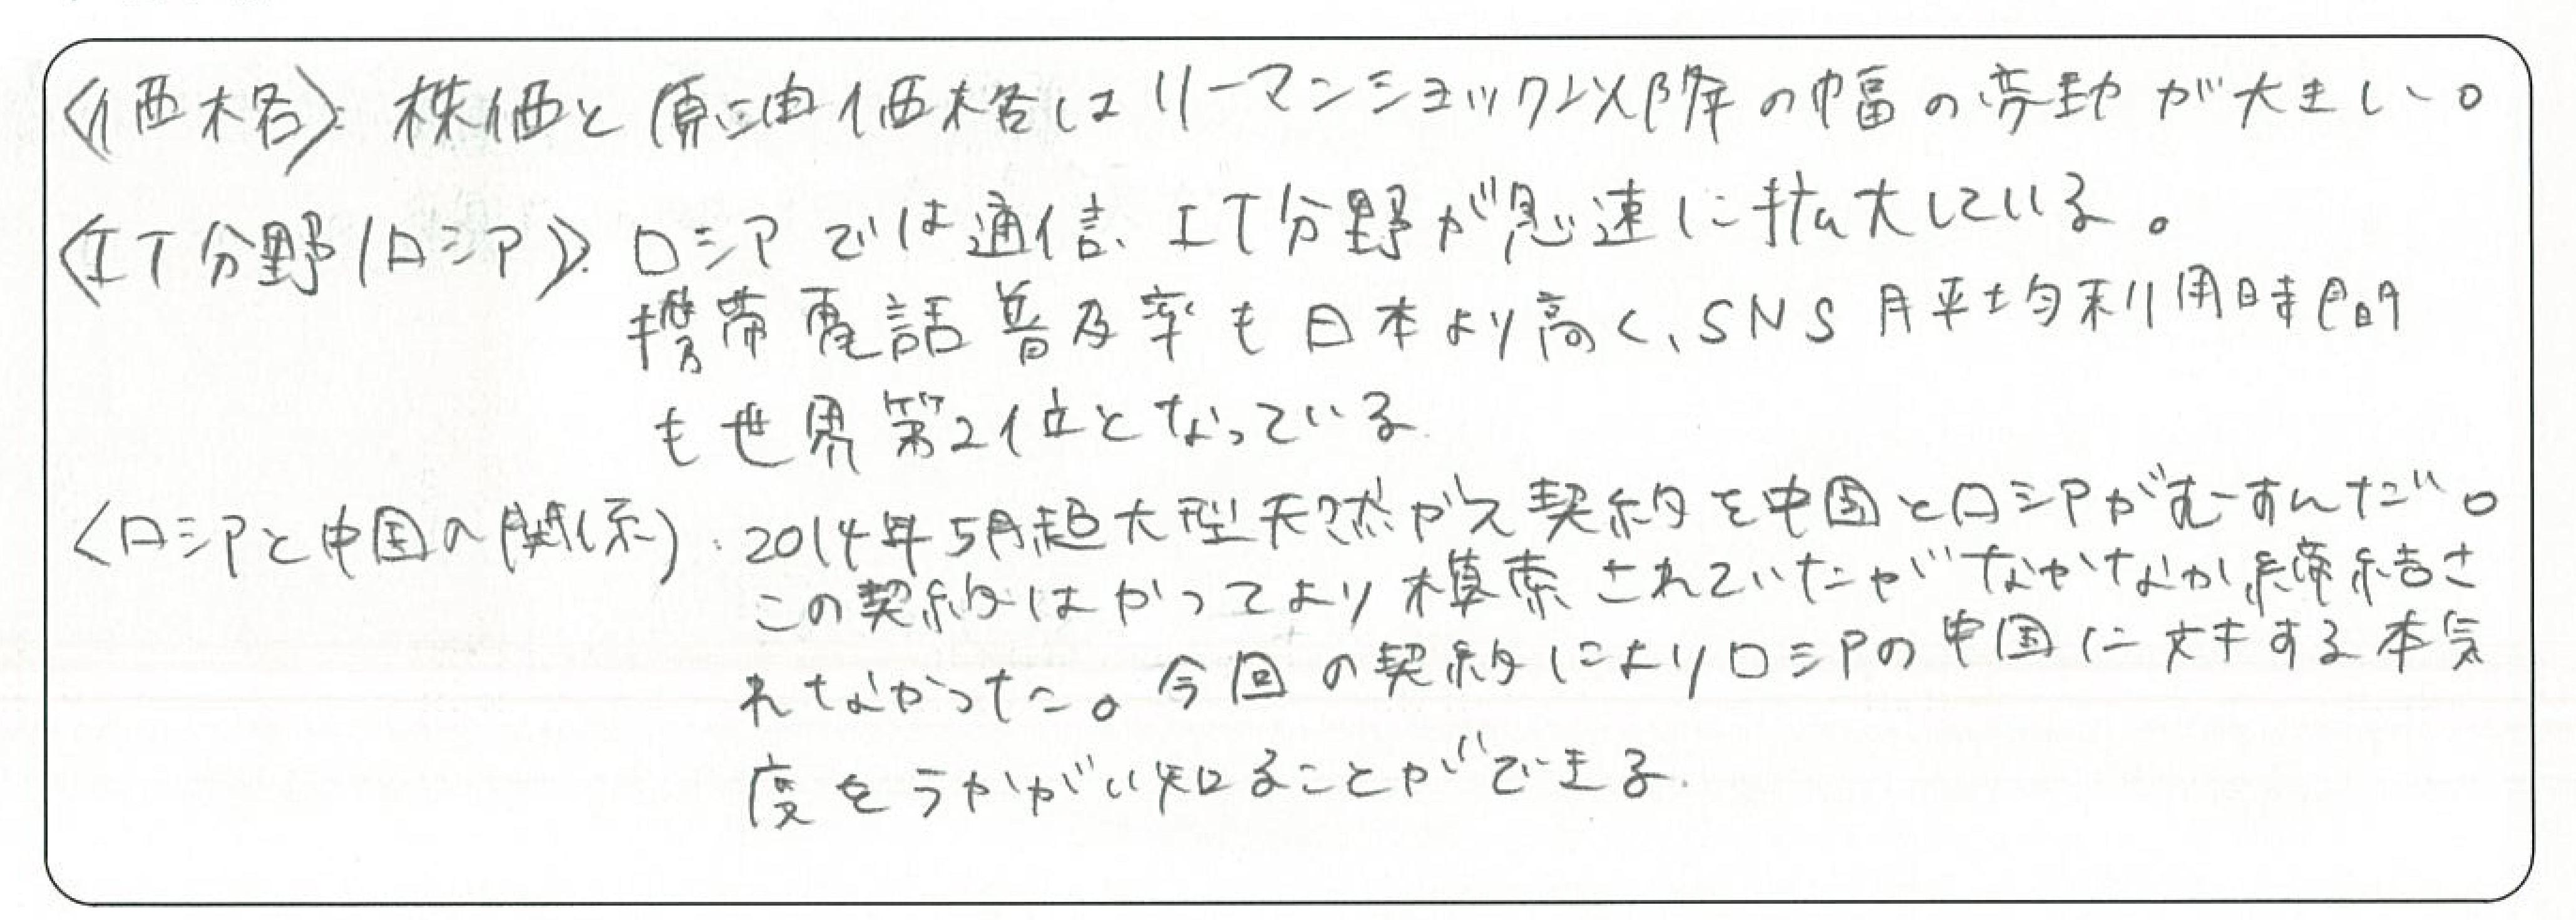 〈価格〉: 株価と原油価格はリーマンショック以降の幅の変動が大きい。
〈IT分野/ロシア〉. ロシアでは通信、IT分野が急速に拡大している。
携帯電話普及率も日本より高く、SNS月平均利用時間
も世界第2位となっている.
〈ロシアと中国の関係〉. 2014年5月超大型天然ガス契約を中国とロシアがむすんだ。
この契約はかつてより模索されていたがなかなか締結さ
れなかった。今回の契約によりロシアの中国に対する本気
度をうかがい知ることができる.